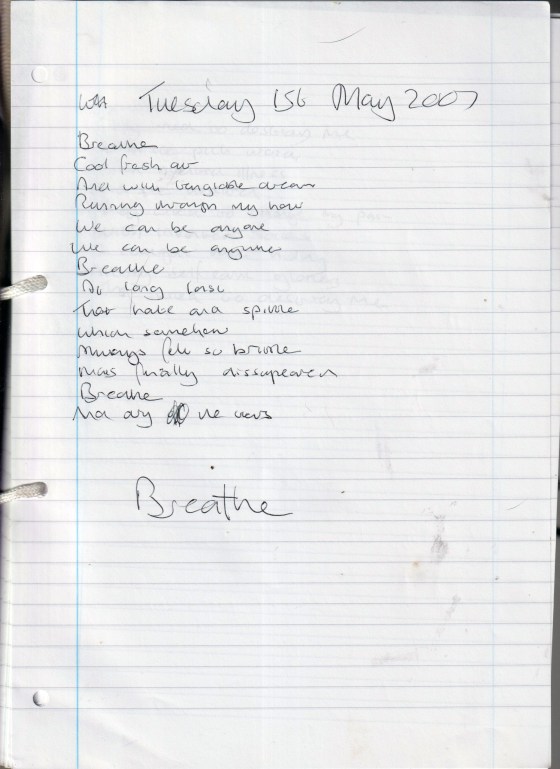 Tuesday 1st May 2007
Breathe
Cool fresh air
And with dream
Running through my hair
We can be anyone
We can be anytime
Breathe
At long last
That hate and spittle
Which somehow
Always felt so brittle
Has finally dissapeared
Breathe
And dry the tears
Breathe